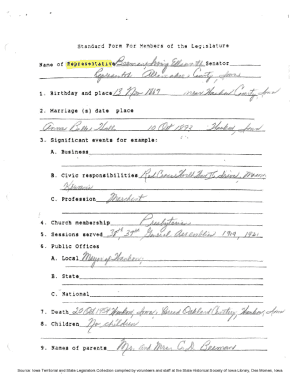 Standard Form For Members of the Legislature
Name of Representative Beeman, Senator
Represented Allamakee County, Iowa
1. Birthday and place 13 Nov 1867 County, Iowa
2. Marriage (s) date place
Anna Belle Hall 10 Oct 1893 Waukon, Iowa
3. Significant events for example:
A. Business
B. Civic responsibilities Red Cross Mason
C. Profession Merchant
4. Church membership Presbyterian
5. Sessions served 38th, 39th General Assemblies 1919, 1921
6. Public Offices
A. Local Mayor of Waukon,
B. State
C. National
7. Death Waukon, Iowa; buried Oakland Cemetery, Waukon, Iowa
8. Children No children
9. Names of parents Mr. and Mrs. C. D. Beeman
Source: Iowa Territorial and State Legislators Collection compiled by volunteers and staff at the State Historical Society of Iowa Library, Des Moines, Iowa.